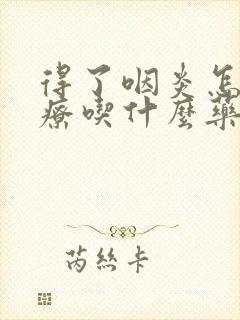 得了咽炎怎
療喫什麼藥
芮絲卡